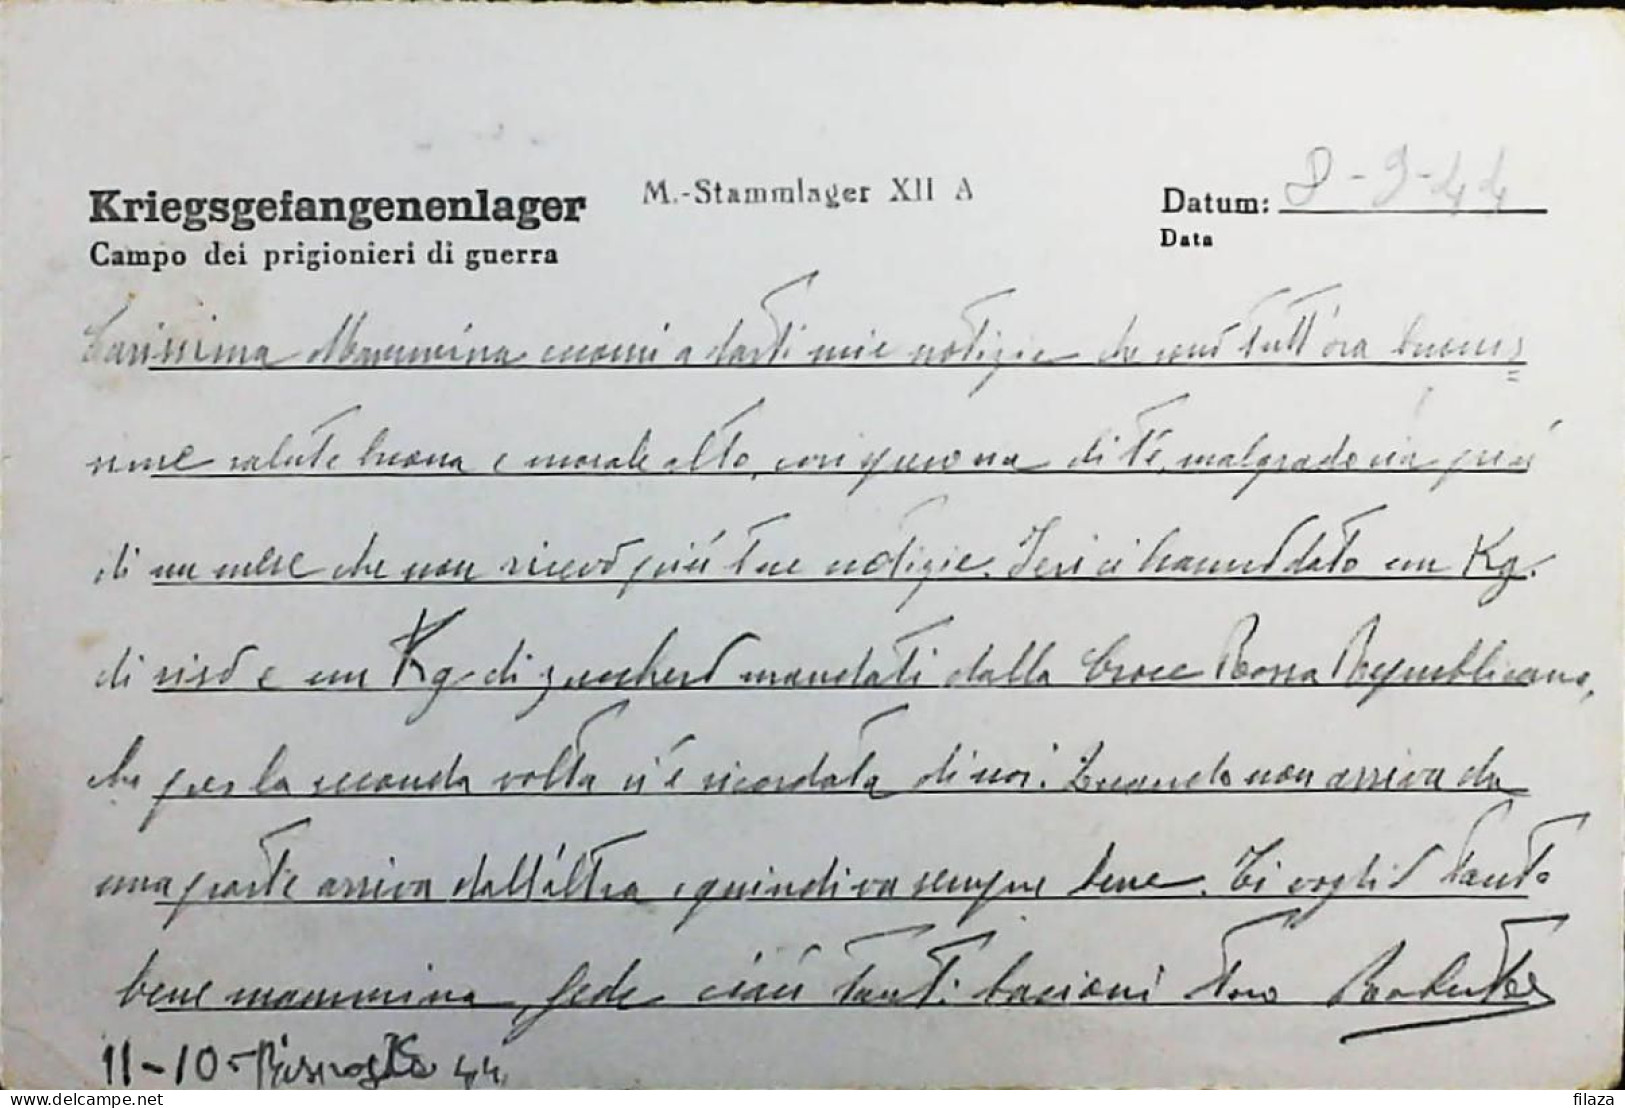 Kriegsgefangenenlager
Campo dei prigionieri di guerra
M.-Stammlager XII A
Datum: 8-9-44
Data
Carissima Mammina eccomi a darti mie notizie che sono tutt'ora buonis=
sime salute buona e morale alto, così spero sia di te, malgrado sia più
di un mese che non ricevo più tue notizie. Ieri ci hanno dato un Kg.
di riso e un Kg di zucchero mandati dalla Croce Rossa Repubblicana,
che per la seconda volta si è ricordata di noi. Quando non arriva da
una parte arriva dall'altra, quindi va sempre bene. Ti voglio tanto
bene mammina, fede ciao tanti bacioni tuo Roberto
11-10- Risposta 44
filaza